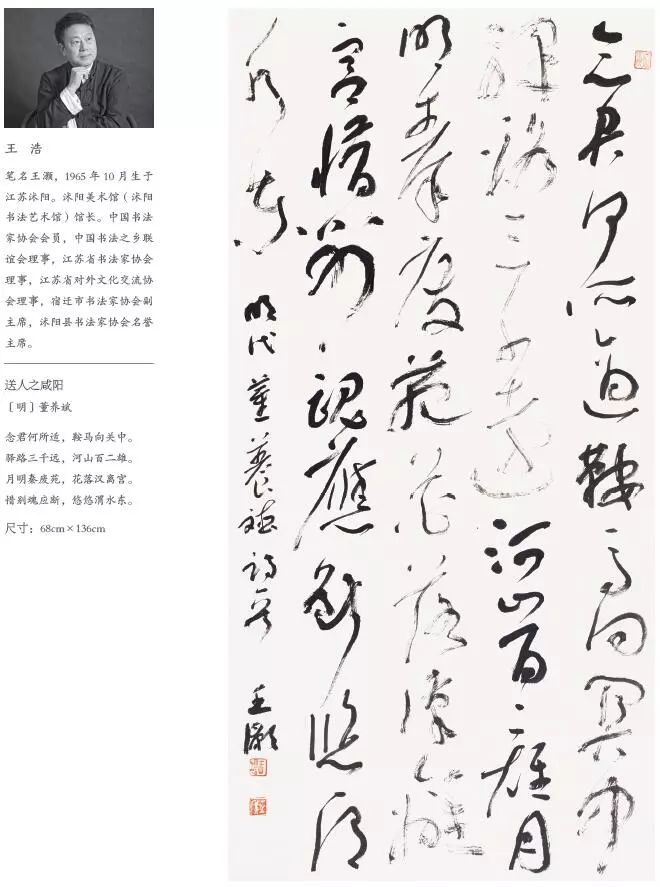 王 浩
笔名王灏，1965年10月生于
江苏沭阳。沭阳美术馆（沭阳
书法艺术馆）馆长。中国书法
家协会会员，中国书法之乡联
谊会理事，江苏省书法家协会
理事，江苏省对外文化交流协
会理事，宿迁市书法家协会副
主席，沭阳县书法家协会名誉
主席。
送人之咸阳
〔明〕董养斌
念君何所适，鞍马向关中。
驿路三千远，河山百二雄。
月明秦废苑，花落汉离宫。
惜别魂应断，悠悠渭水东。
尺寸：68cm×136cm
念君何所適鞍馬向関中
驛路三千遠河山百二雄月
明秦廢苑花落漢離
宮惜別魂應斷悠悠渭
水東
明代董養斌詩
王灝